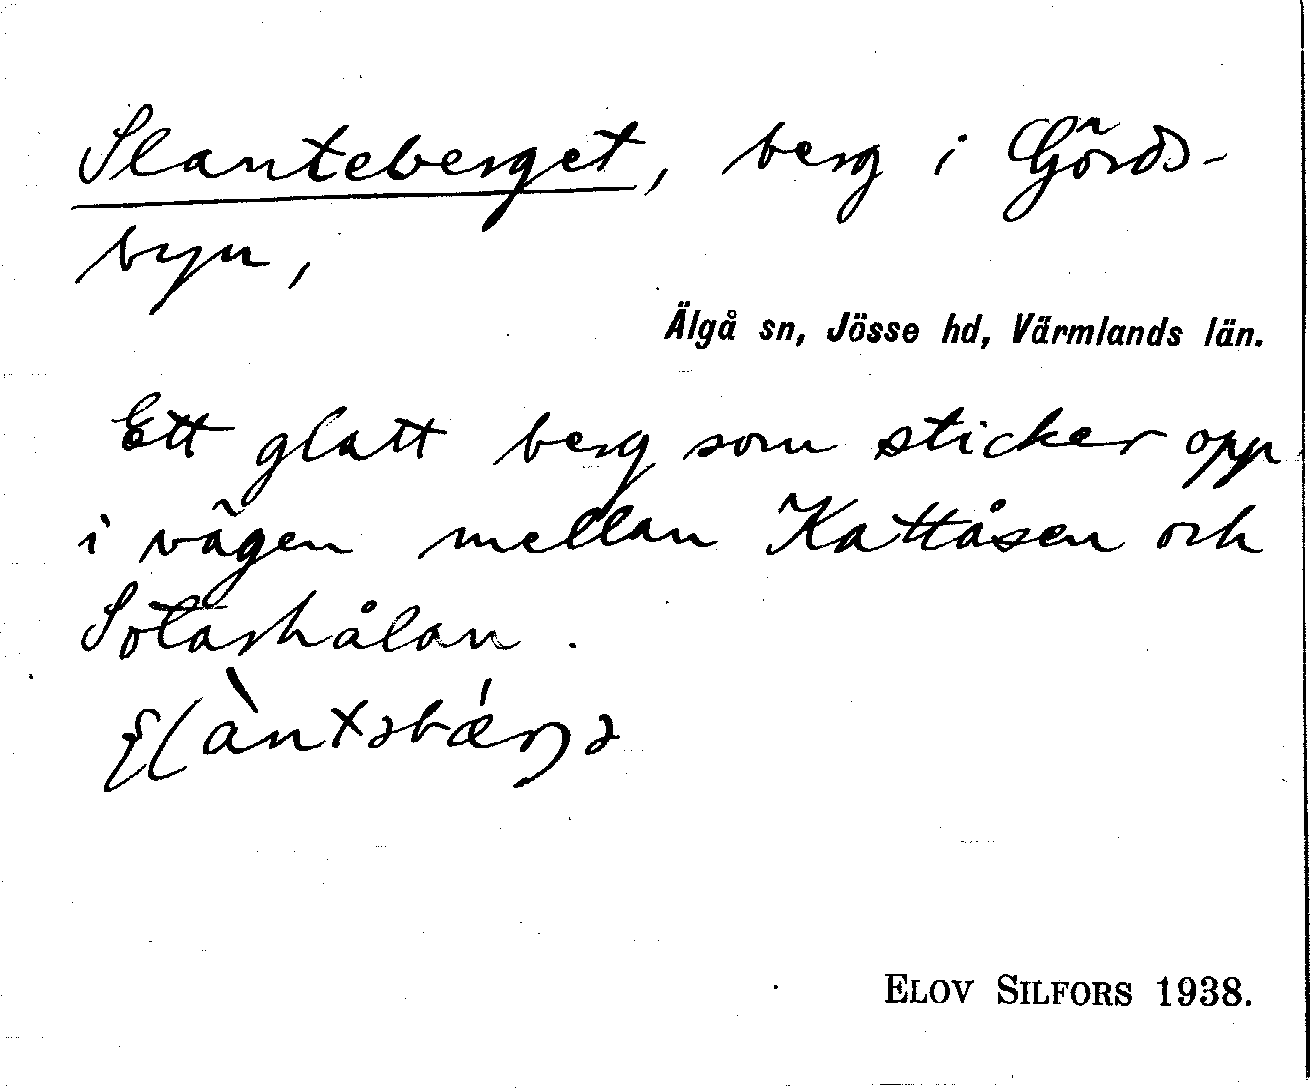 Slanteberget, berg i Görds-
byn,
Älgå sn, Jösse hd, Värmlands län.
Ett glatt berg som sticker opp
i vägen mellan Kattåsen och
Sotashålan.
ELOV SILFORS 1938.